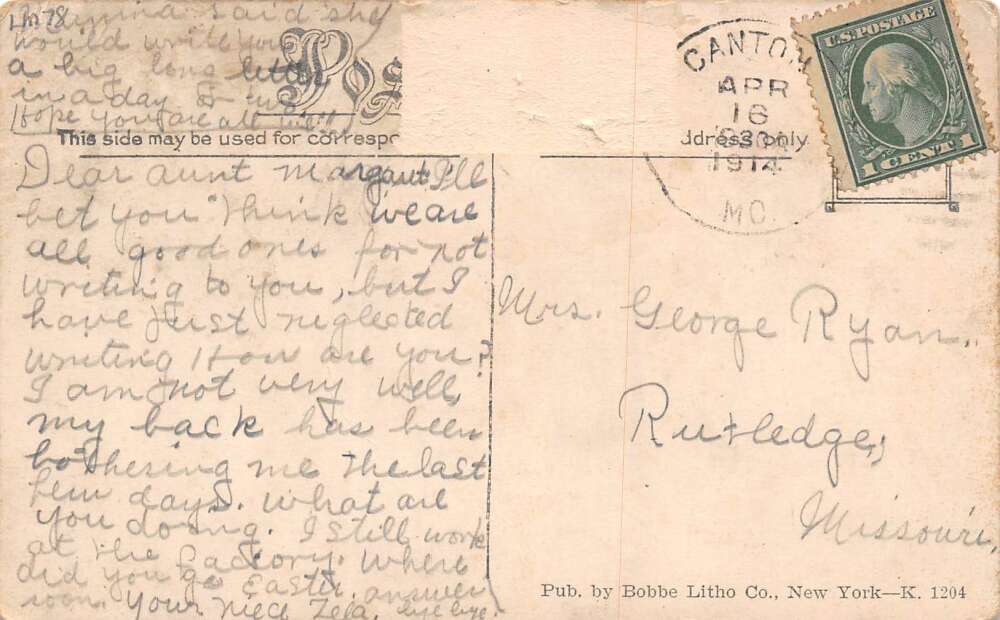 LM78
said she
would write you
a big long letter
in a day or two
Hope you are all well
Pos
This side may be used for correspo
ddress only
CANTON
APR
16
1914
MO.
U.S. POSTAGE
1 CENT 1
Dear aunt Margaret I'll
bet you think we are
all good ones for not
writing to you, but I
have just neglected
writing How are you?
I am not very well,
my back has been
bothering me the last
few days. What are
you doing. I still work
at the factory. Where
did you go Easter. answer
soon. Your niece Zela. bye bye.
Mrs. George Ryan.
Rutledge,
Missouri,
Pub. by Bobbe Litho Co., New York—K. 1204